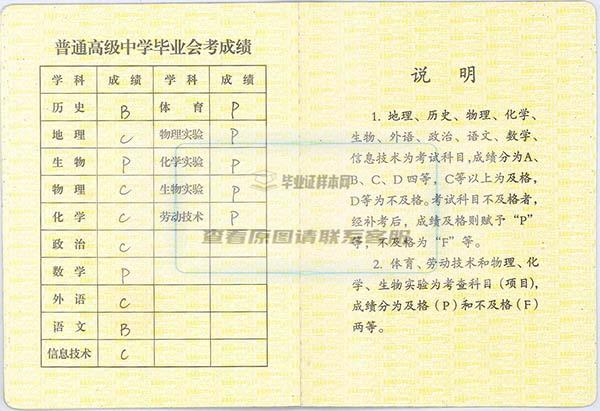 普通高级中学毕业会考成绩
学科 成绩 学科 成绩
历史 B 体育 P
地理 C 物理实验 P
生物 P 化学实验 P
物理 C 生物实验 P
化学 C 劳动技术 P
政治 C
数学 P
外语 C
语文 B
信息技术 C
毕业证样本网
查看原图请联系客服
说明
1. 地理、历史、物理、化学、
生物、外语、政治、语文、数学、
信息技术为考试科目,成绩分为A、
B、C、D四等,C等以上为及格,
D等为不及格。考试科目不及格者,
经补考后,成绩及格则赋予“P”
等,不及格为“F”等。
2. 体育、劳动技术和物理、化
学、生物实验为考查科目(项目),
成绩分为及格(P)和不及格(F)
两等。